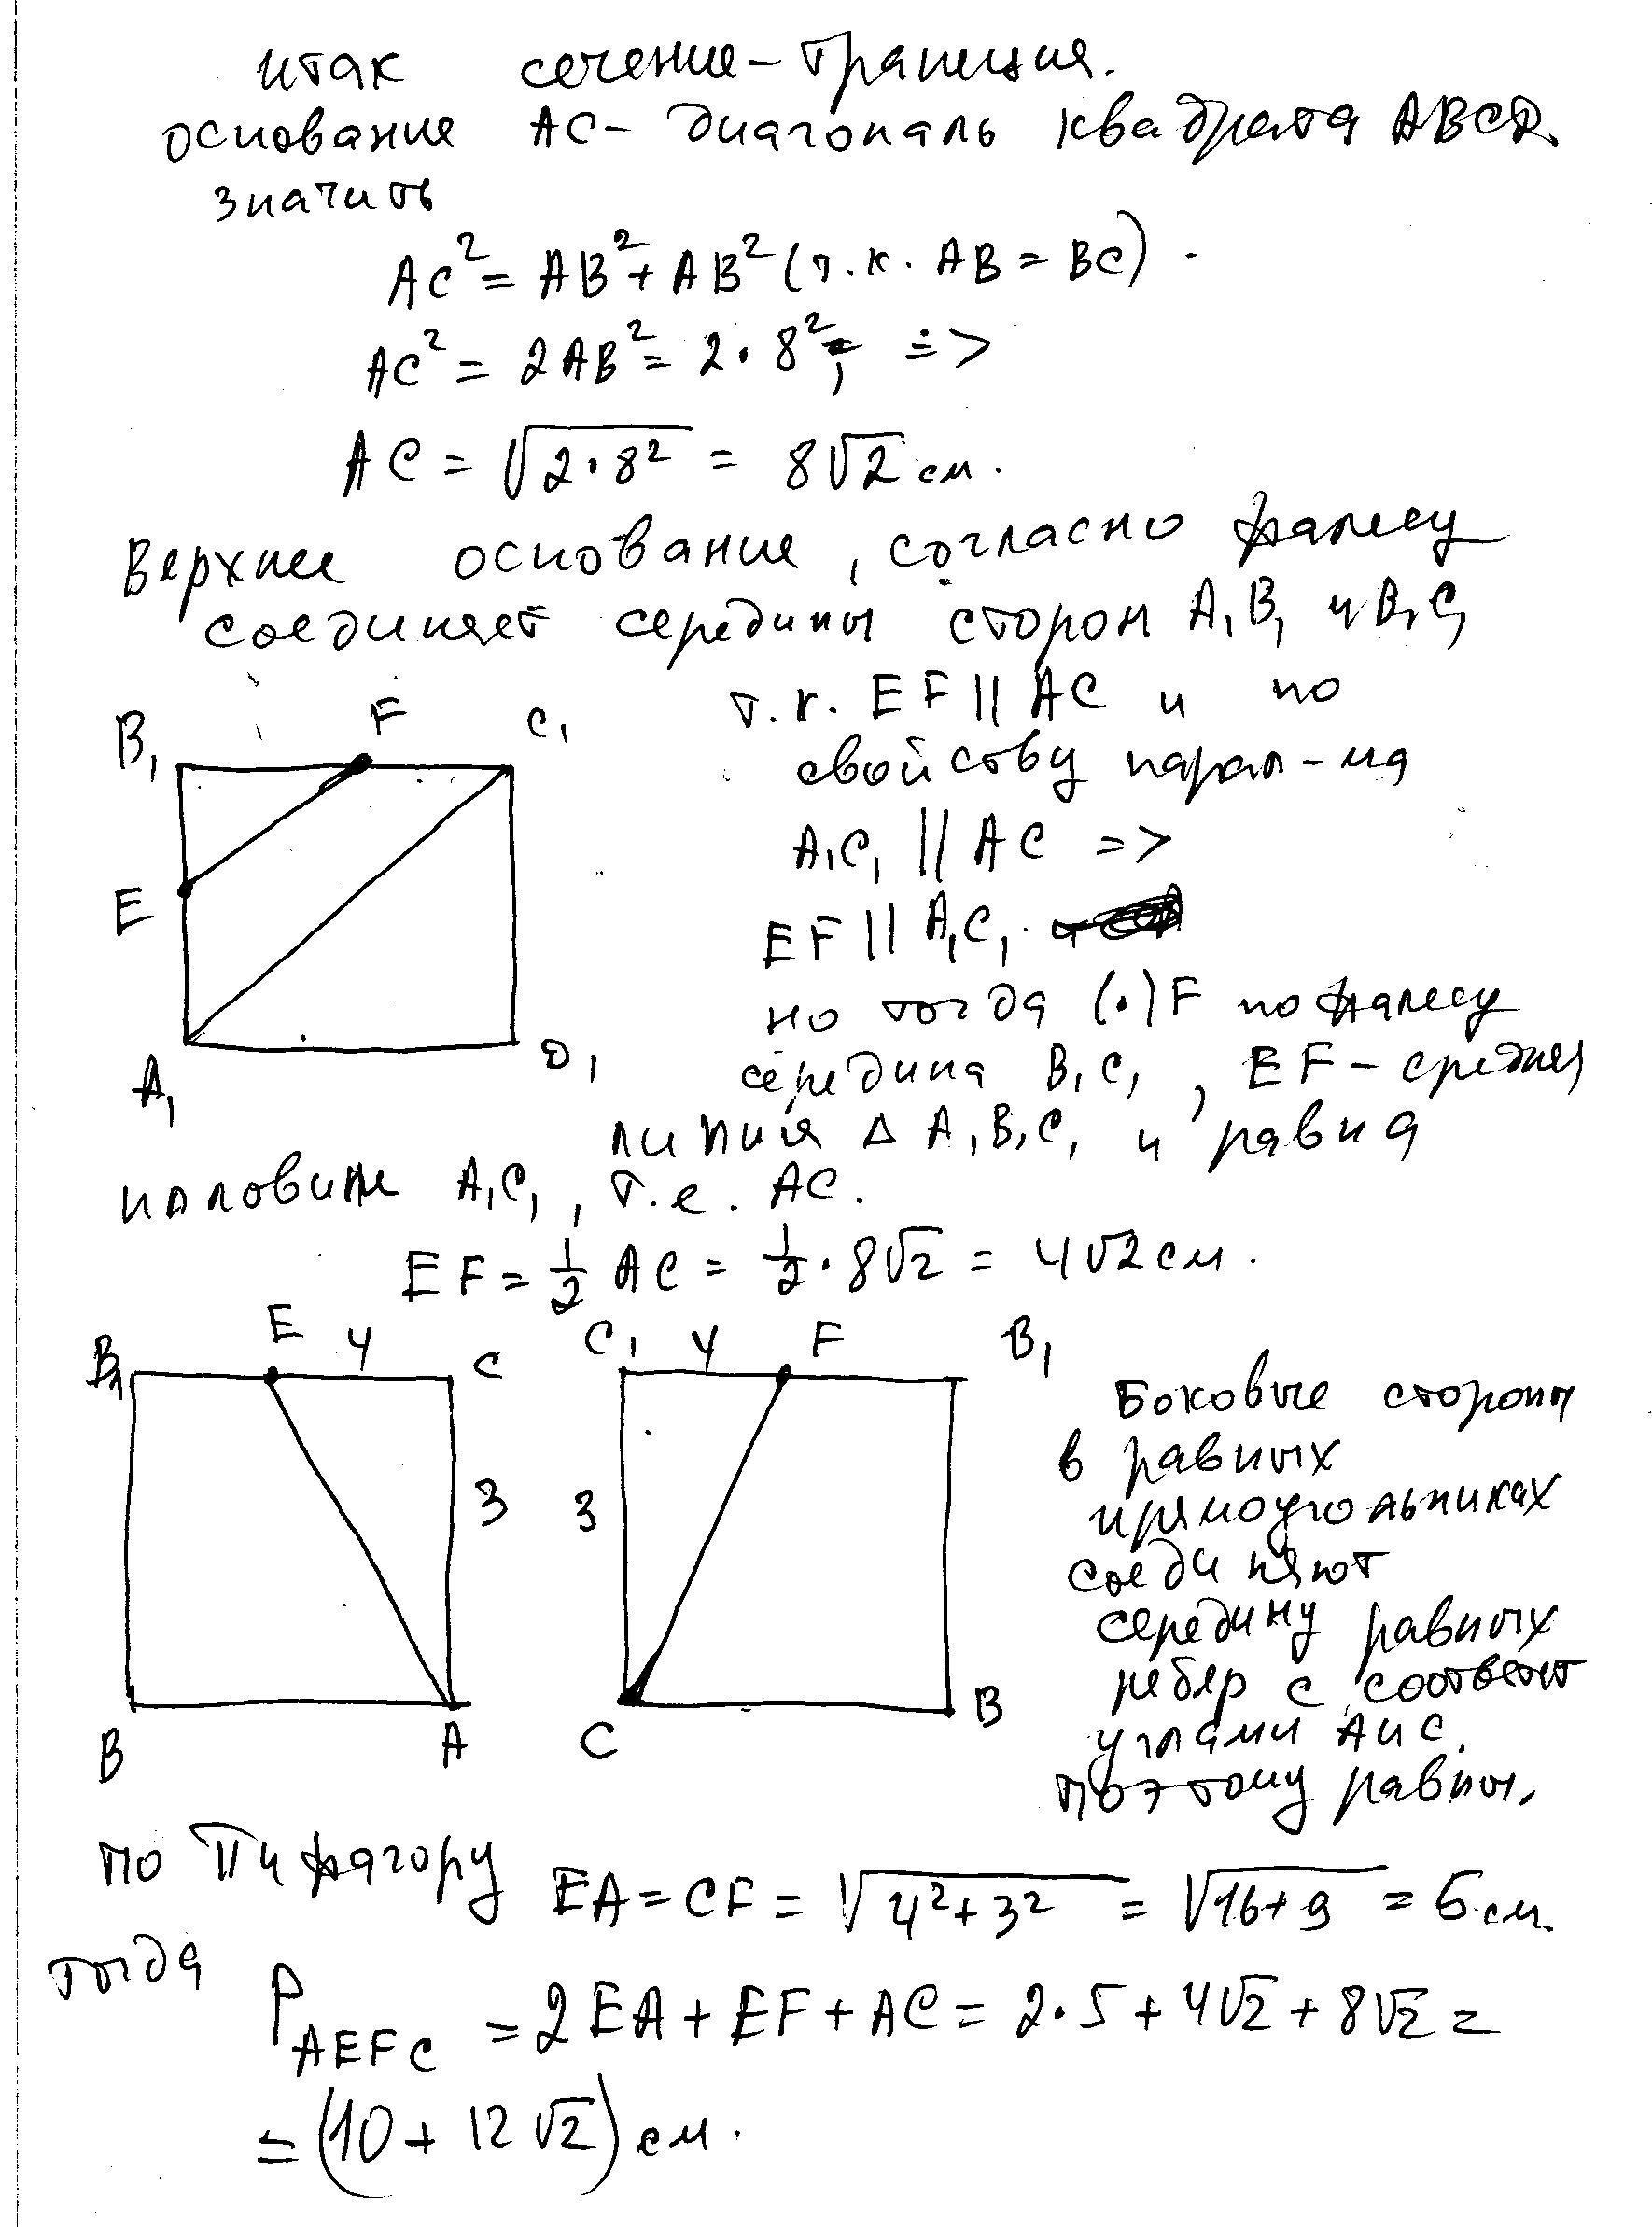 итак сечение – трапеция.
основание AC – диагональ квадрата ABCD.
значить
AC² = AB² + AB² (т.к. AB = BC)
AC² = 2AB² = 2·8², =>
AC = √2·8² = 8√2 см.
Верхнее основание, согласно фалесу
соединяет середины сторон A₁B₁ и B₁C₁
т.к. EF || AC и по
свойству парал-ма
A₁C₁ || AC =>
EF || A₁C₁.
но тогда (·)F по фалесу
середина B₁C₁, EF – средняя
линия Δ A₁B₁C₁ и равна
половине A₁C₁, т.е. AC.
B₁ F C₁
E
A₁ D₁
EF = 1/2 AC = 1/2 · 8√2 = 4√2 см.
B₁ E 4 C
3
B A
C₁ 4 F B₁
3
C B
Боковые стороны
в равных
прямоугольниках
соединяют
середину равных
ребер с соответст
углами A и C.
поэтому равны.
по Пифагору EA = CF = √4²+3² = √16+9 = 5 см.
тогда
P AEFC = 2EA + EF + AC = 2·5 + 4√2 + 8√2 =
= (10 + 12√2) см.